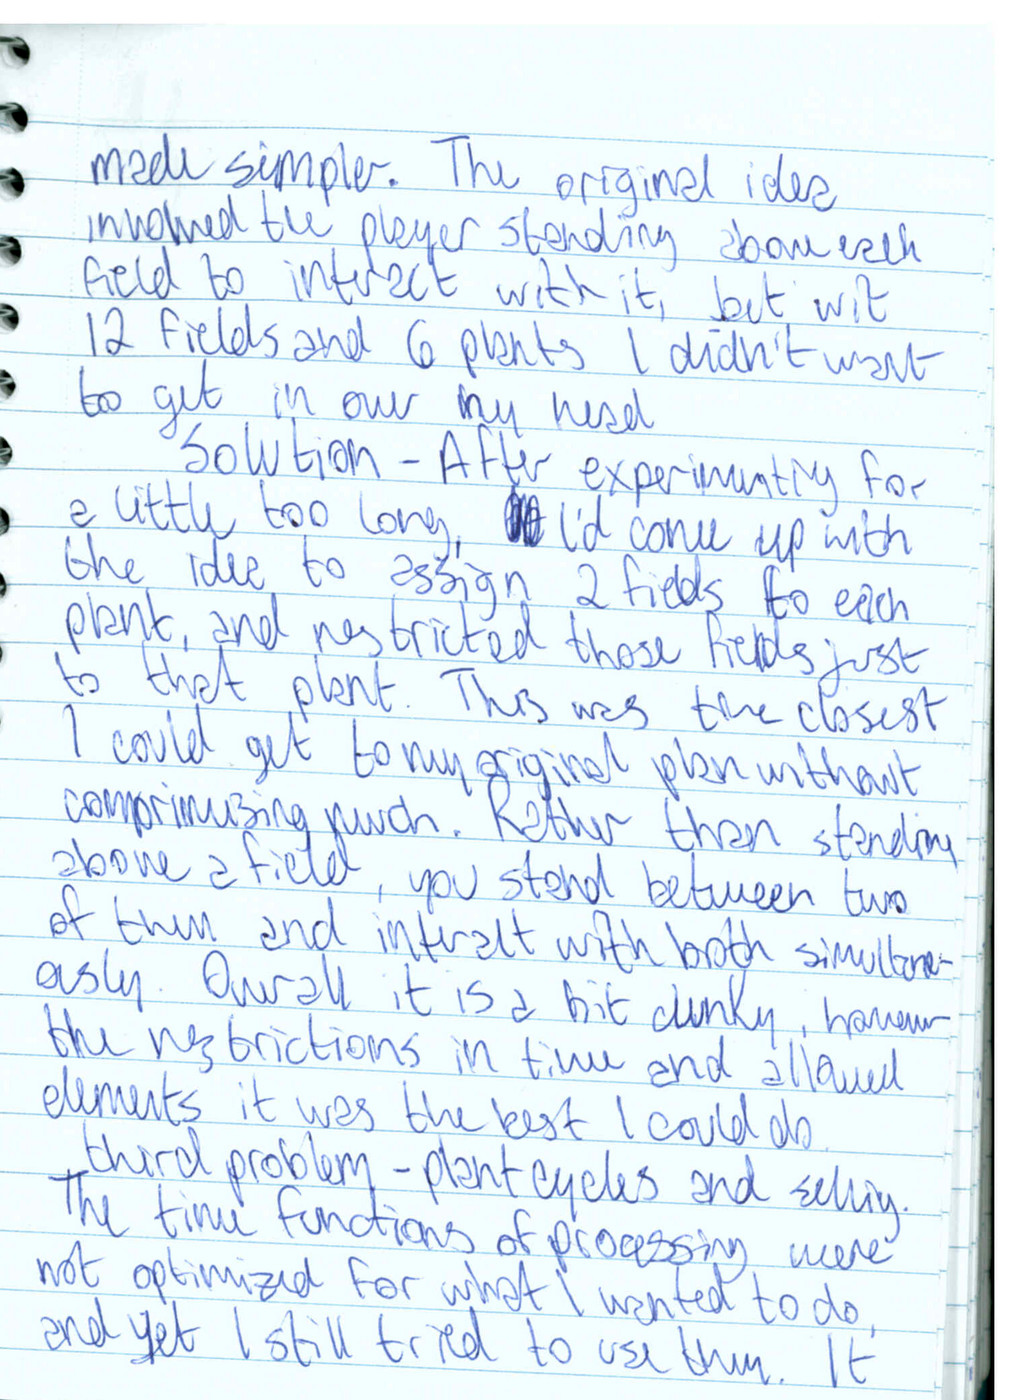 made simpler. The original idea
involved the player standing above each
field to interact with it, but wit
12 fields and 6 plants I didn't want
to get in over my head
Solution - After experimenting for
a little too long, I'd come up with
the idea to assign 2 fields to each
plant, and restricted those fields just
to that plant. This was the closest
I could get to my original plan without
comprimizing much. Rather than standing
above a field, you stand between two
of them and interact with both simultane-
ously. Overall it is a bit clunky, however
the restrictions in time and allowed
elements it was the best I could do.
third problem - plant cycles and selling.
The time functions of processing were
not optimized for what I wanted to do,
and yet I still tried to use them. It